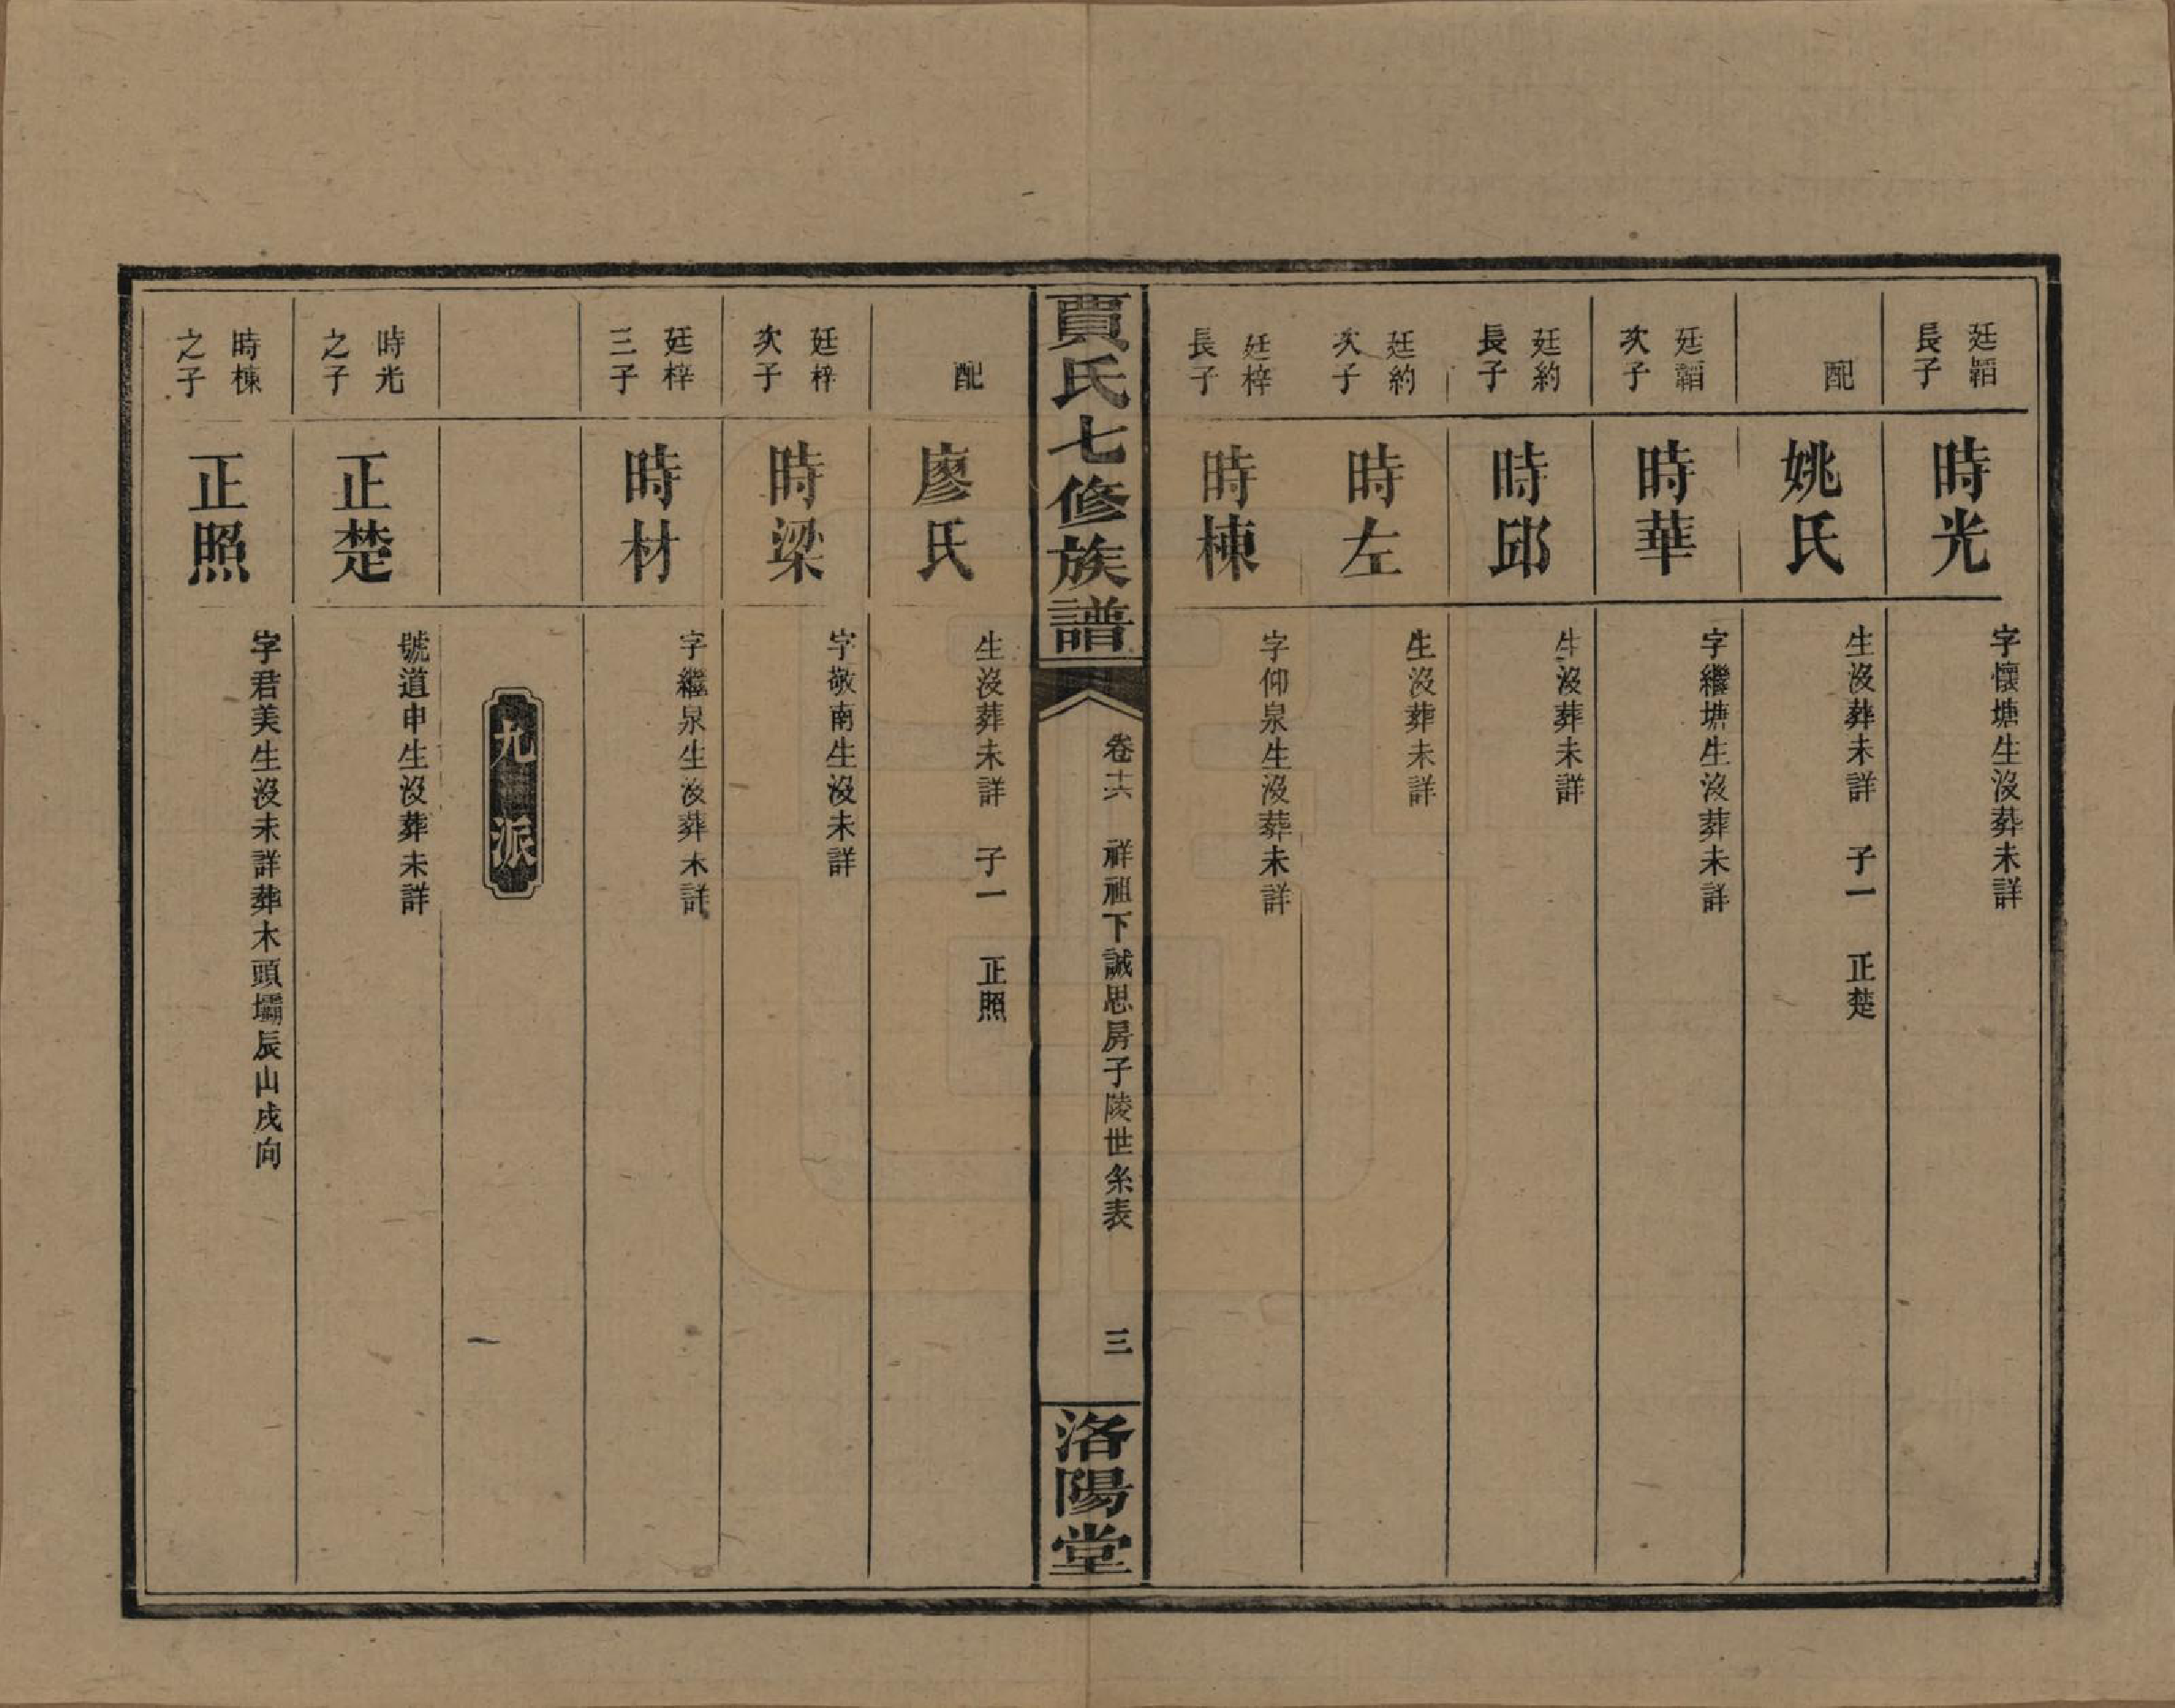 廷韜長子
時光
字懷塘生沒葬未詳
配
姚氏
生沒葬未詳　子一　正楚
廷韜次子
時華
字繼塘生沒葬未詳
廷約長子
時邱
生沒葬未詳
廷約次子
時左
生沒葬未詳
廷梓長子
時棟
字仰泉生沒葬未詳
賈氏七修族譜
卷十六　祥祖下誠思房子陵世系表　三
洛陽堂
配
廖氏
生沒葬未詳　子一　正照
廷梓次子
時梁
字敬南生沒未詳
廷梓三子
時材
字繼泉生沒葬未詳
九派
時光之子
正楚
號道申生沒葬未詳
時棟之子
正照
字君美生沒未詳葬木頭壩辰山戌向